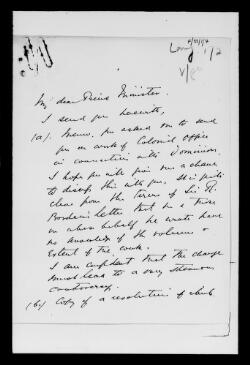 My dear Prime Minister.
I send you herewith
(a). Memo. you asked me to send
you on work of Colonial Office
in connection with Dominions.
I hope you will give me a chance
to discuss this with you. It is quite
clear from the terms of Sir R.
Borden's letter that he & those
on whose behalf he writes have
no knowledge of the volume &
extent of the work.
I am confident that the change
must lead to a very strenuous
controversy.
(b) Copy of a resolution of